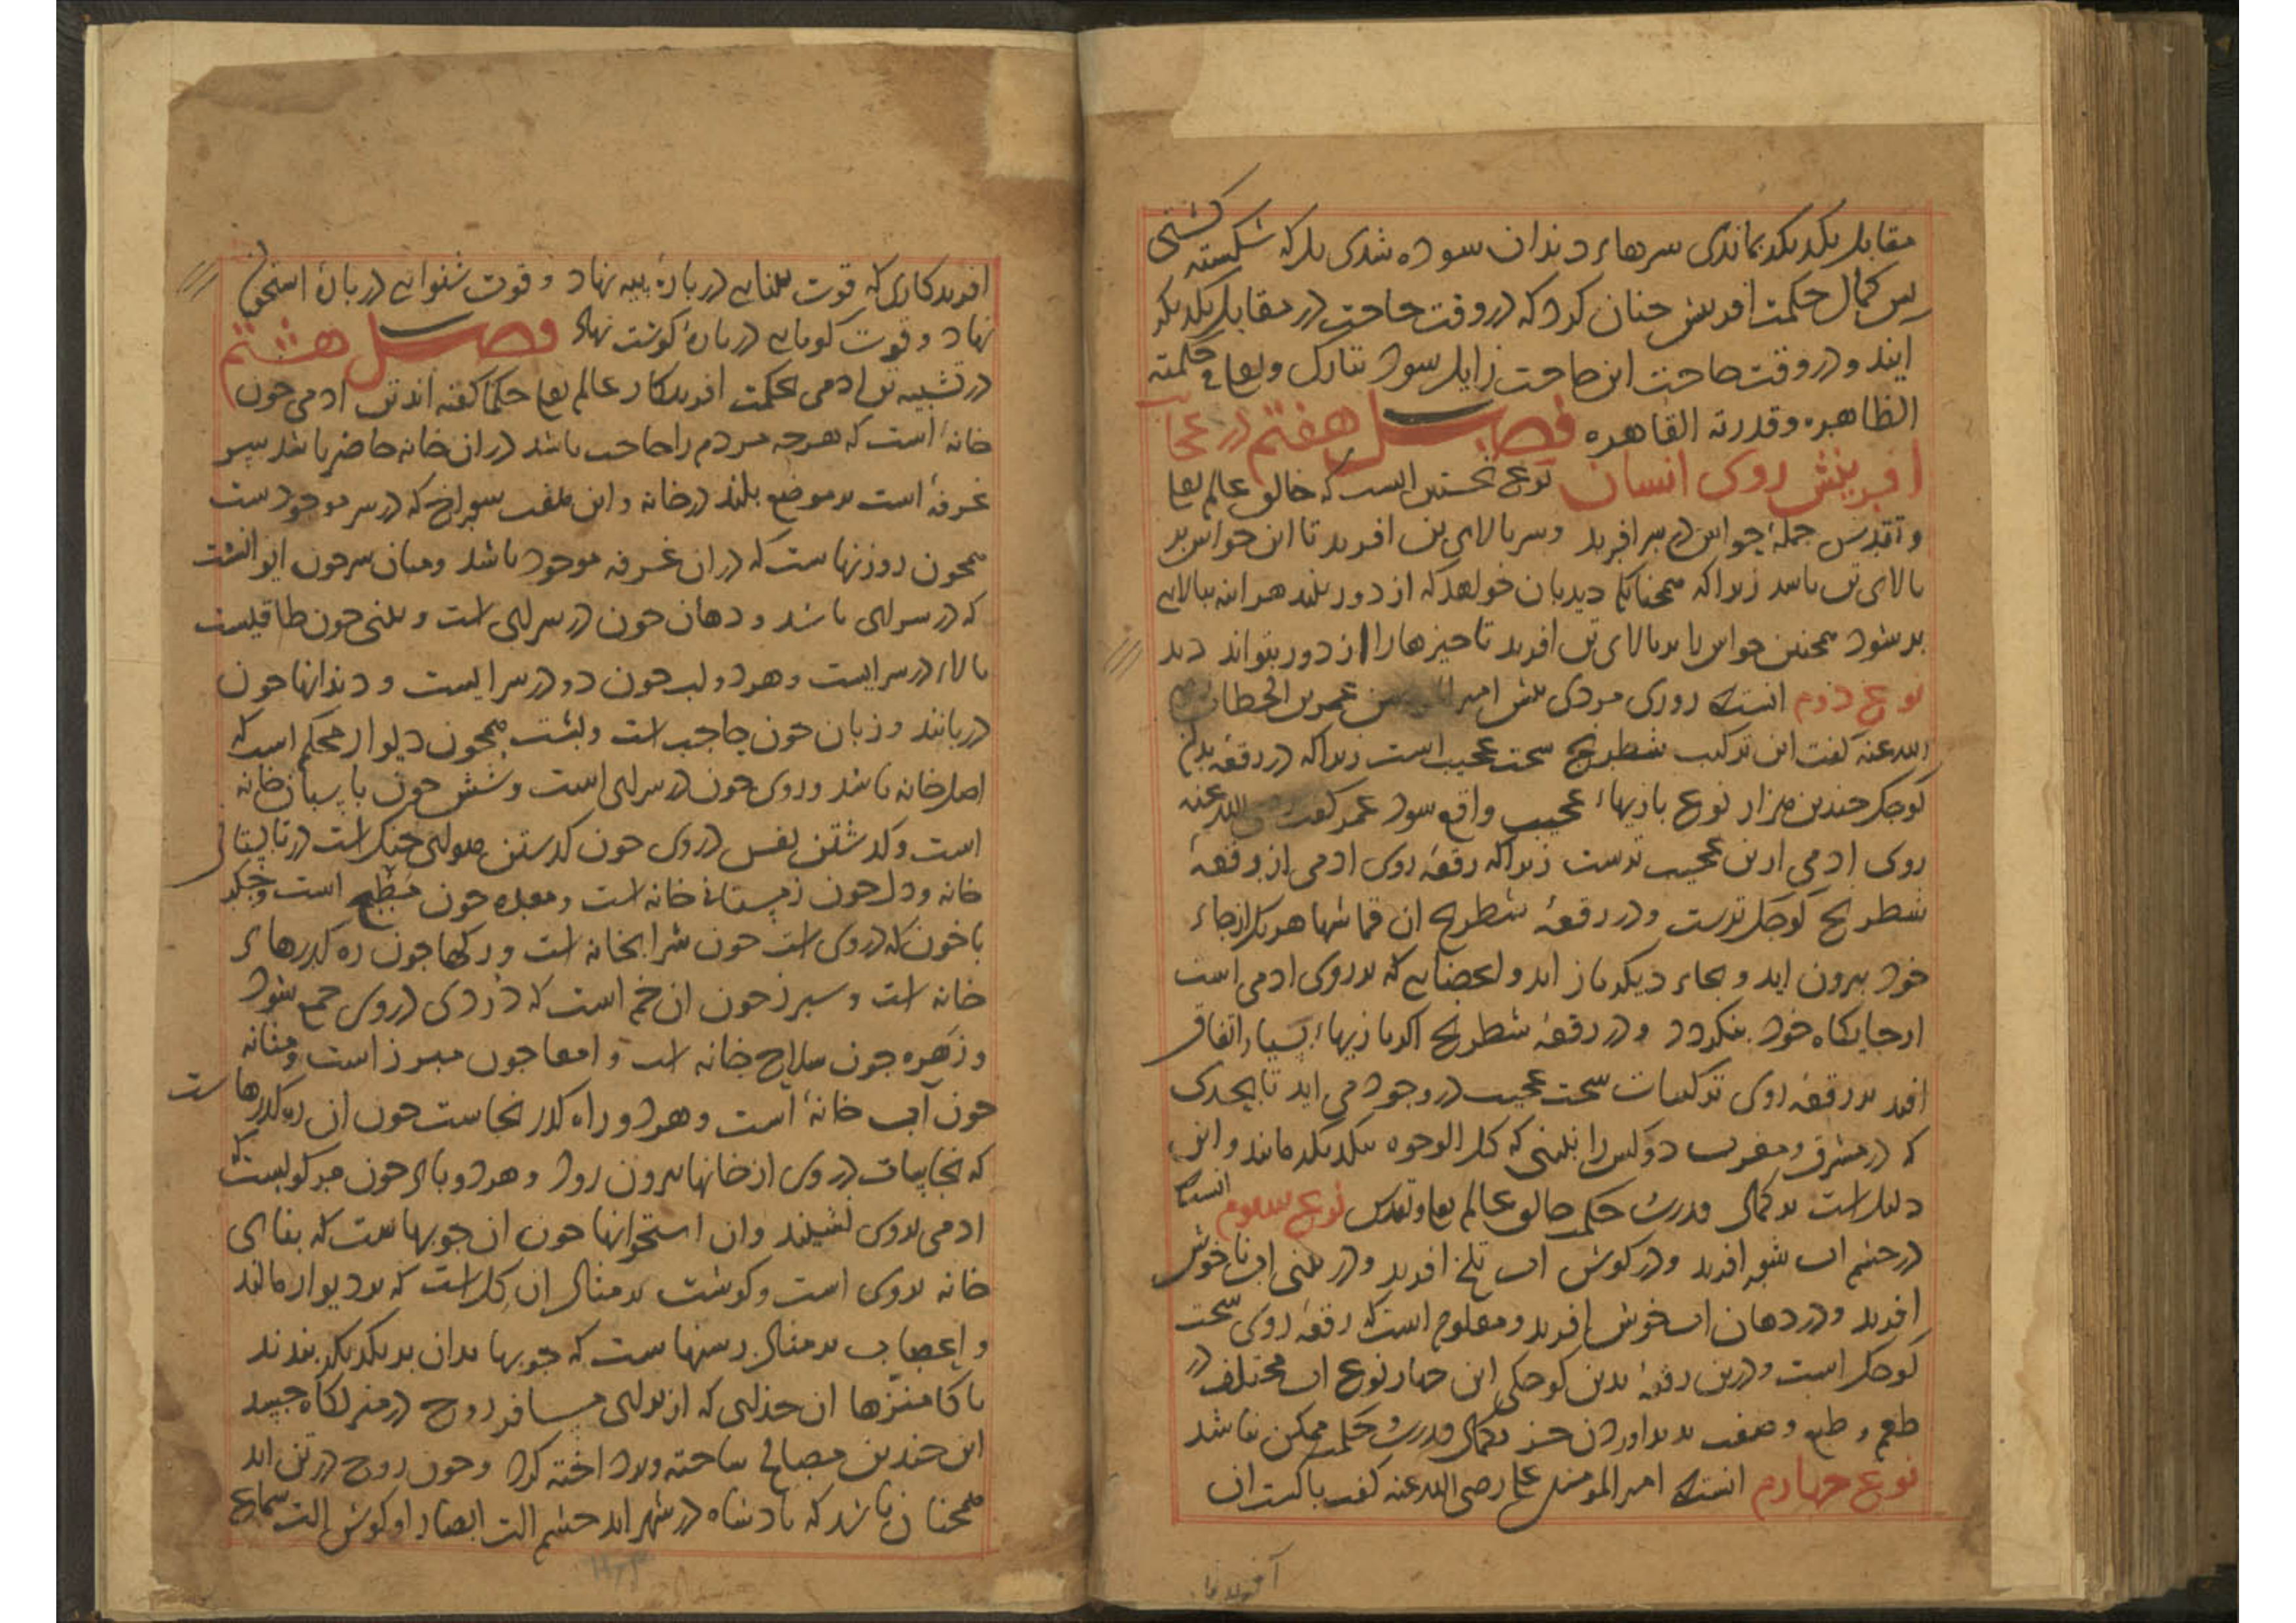 مقابل یکدیکر بماندی سرهاء دندان سوده شدی بلکه شکسته کشتی
پس کمال حکمت افرینش چنان کرد که در وقت حاجت در مقابل یکدیکر
ایند و در وقت حاجت این حاجت زایل شود تبارک وتعالی فی حکمته
الظاهره وقدرته القاهره فصل هفتم در عجایب
افرینش روی انسان نوع نخستین انست که خالق عالم تعالی
وتقدس جملهٔ حواس در سر افرید وسر بالای تن افرید تا این حواس بر
بالای تن باشد زیراکه همچنانکه دیدبان خواهد که از دور بیند هراینه ببالایی
بر شود همچنین حواس را بر بالای تن افرید تا چیزها را از دور بتواند دید
نوع دوم انستکه روزی مردی پیش امیر عمر بن الخطاب رضی
الله عنه کفت این ترکیب شطرنج سخت عجیب است زیراکه در رقعه بدین
کوچکی چندین هزار نوع بازیهاء عجیب واقع شود عمر کفت رضی الله عنه
روی ادمی ازین عجیب ترست زیراکه رقعهٔ روی ادمی از رقعهٔ
شطرنج کوچک ترست ودر رقعهٔ شطرنج ان قماشها هر یک از جاء
خود بیرون اید و بجاء دیکر باز اید واعضایی که بر روی ادمی است
از جایکاه خود بنکردد ودر رقعهٔ شطرنج اکر بازیهاء بسیار اتفاق
افتد بر رقعهٔ روی ترکیبات سخت عجیب در وجود می اید تا بحدی
که در مشرق ومغرب دو کس را نبینی که کل الوجوه بیکدیکر مانند واین
دلیل است بر کمال قدرت حکمت خالق عالم تعالی وتقدس نوع سوم انستکه
در چشم اب شور افرید ودر کوش اب تلخ افرید ودر بینی اب ناخوش
افرید ودر دهان اب خوش افرید ومعلوم است که رقعهٔ روی سخت
کوچک است ودرین رقعهٔ بدین کوچکی این چهار نوع اب مختلف در
طعم و طبع وصفت پدید اوردن جز بکمال قدرت وحکمت ممکن نباشد
نوع چهارم انستکه امیر المومنین علی رضی الله عنه کفت پاکست ان
آفریدکا
افریدکاری که قوت بینایی در پارهٔ پیه نهاد و قوت شنوایی در پارهٔ استخوان
نهاد وقوت کویایی در پارهٔ کوشت نهاد فصل هشتم
در تشبیه تن ادمی بحکمت افریدکار عالم تعالی حکما کفته اند تن ادمی چون
خانهٔ است که هرچه مردم را حاجت باشد در ان خانه حاضر باشد سر
غرفهٔ است بر موضع بلند در خانه واین هفت سوراخ که در سر موجودست
همچون روزنهاست که در ان غرفه موجود باشد ومیان سر چون ایوانست
که در سرای باشد ودهان چون در سرای است وبینی چون طاقیست
بالاء در سرایست وهر دو لب چون دو در سرایست ودندانها چون
دربانند وزبان چون حاجب است وپشت همچون دیوار محکم است که
اصل خانه باشد وروی چون در سرای است وشش چون پاسبان خانه
است وکذشتن نفس در وی چون کذشتن هوای خنک است در تابستان
خانه ودل چون زمستان خانه است ومعده چون مطبخ است وجکر
با خون که در وی است چون شرابخانه است ورکها چون ره کذرهاء
خانه است وسپرز چون ان خم است که دردی در وی جمع شود
وزهره چون سلاح خانه است وامعا چون مبرز است ومثانه
چون آب خانهٔ است وهر دو راه کذر نجاست چون ان ره کذرهاست
که نجاسات در وی از خانها بیرون رود وهر دو پای چون مرکوبیست که
ادمی بر وی نشیند وان استخوانها چون ان چوبهاست که بنای
خانه بر وی است وکوشت بر مثال ان کل است که بر دیوار مالند
واعصاب بر مثال رسنهاست که چوبها بدان بر یکدیکر بندند
پاکا منزها ان خدایی که از برای مسافر روح در منزلکاه جسد
این چندین مصالح ساخته وپرداخته کرد وچون روح در تن اید
همچنان باشد که پادشاه در شهر اید چشم الت ابصار او کوش الت سماع